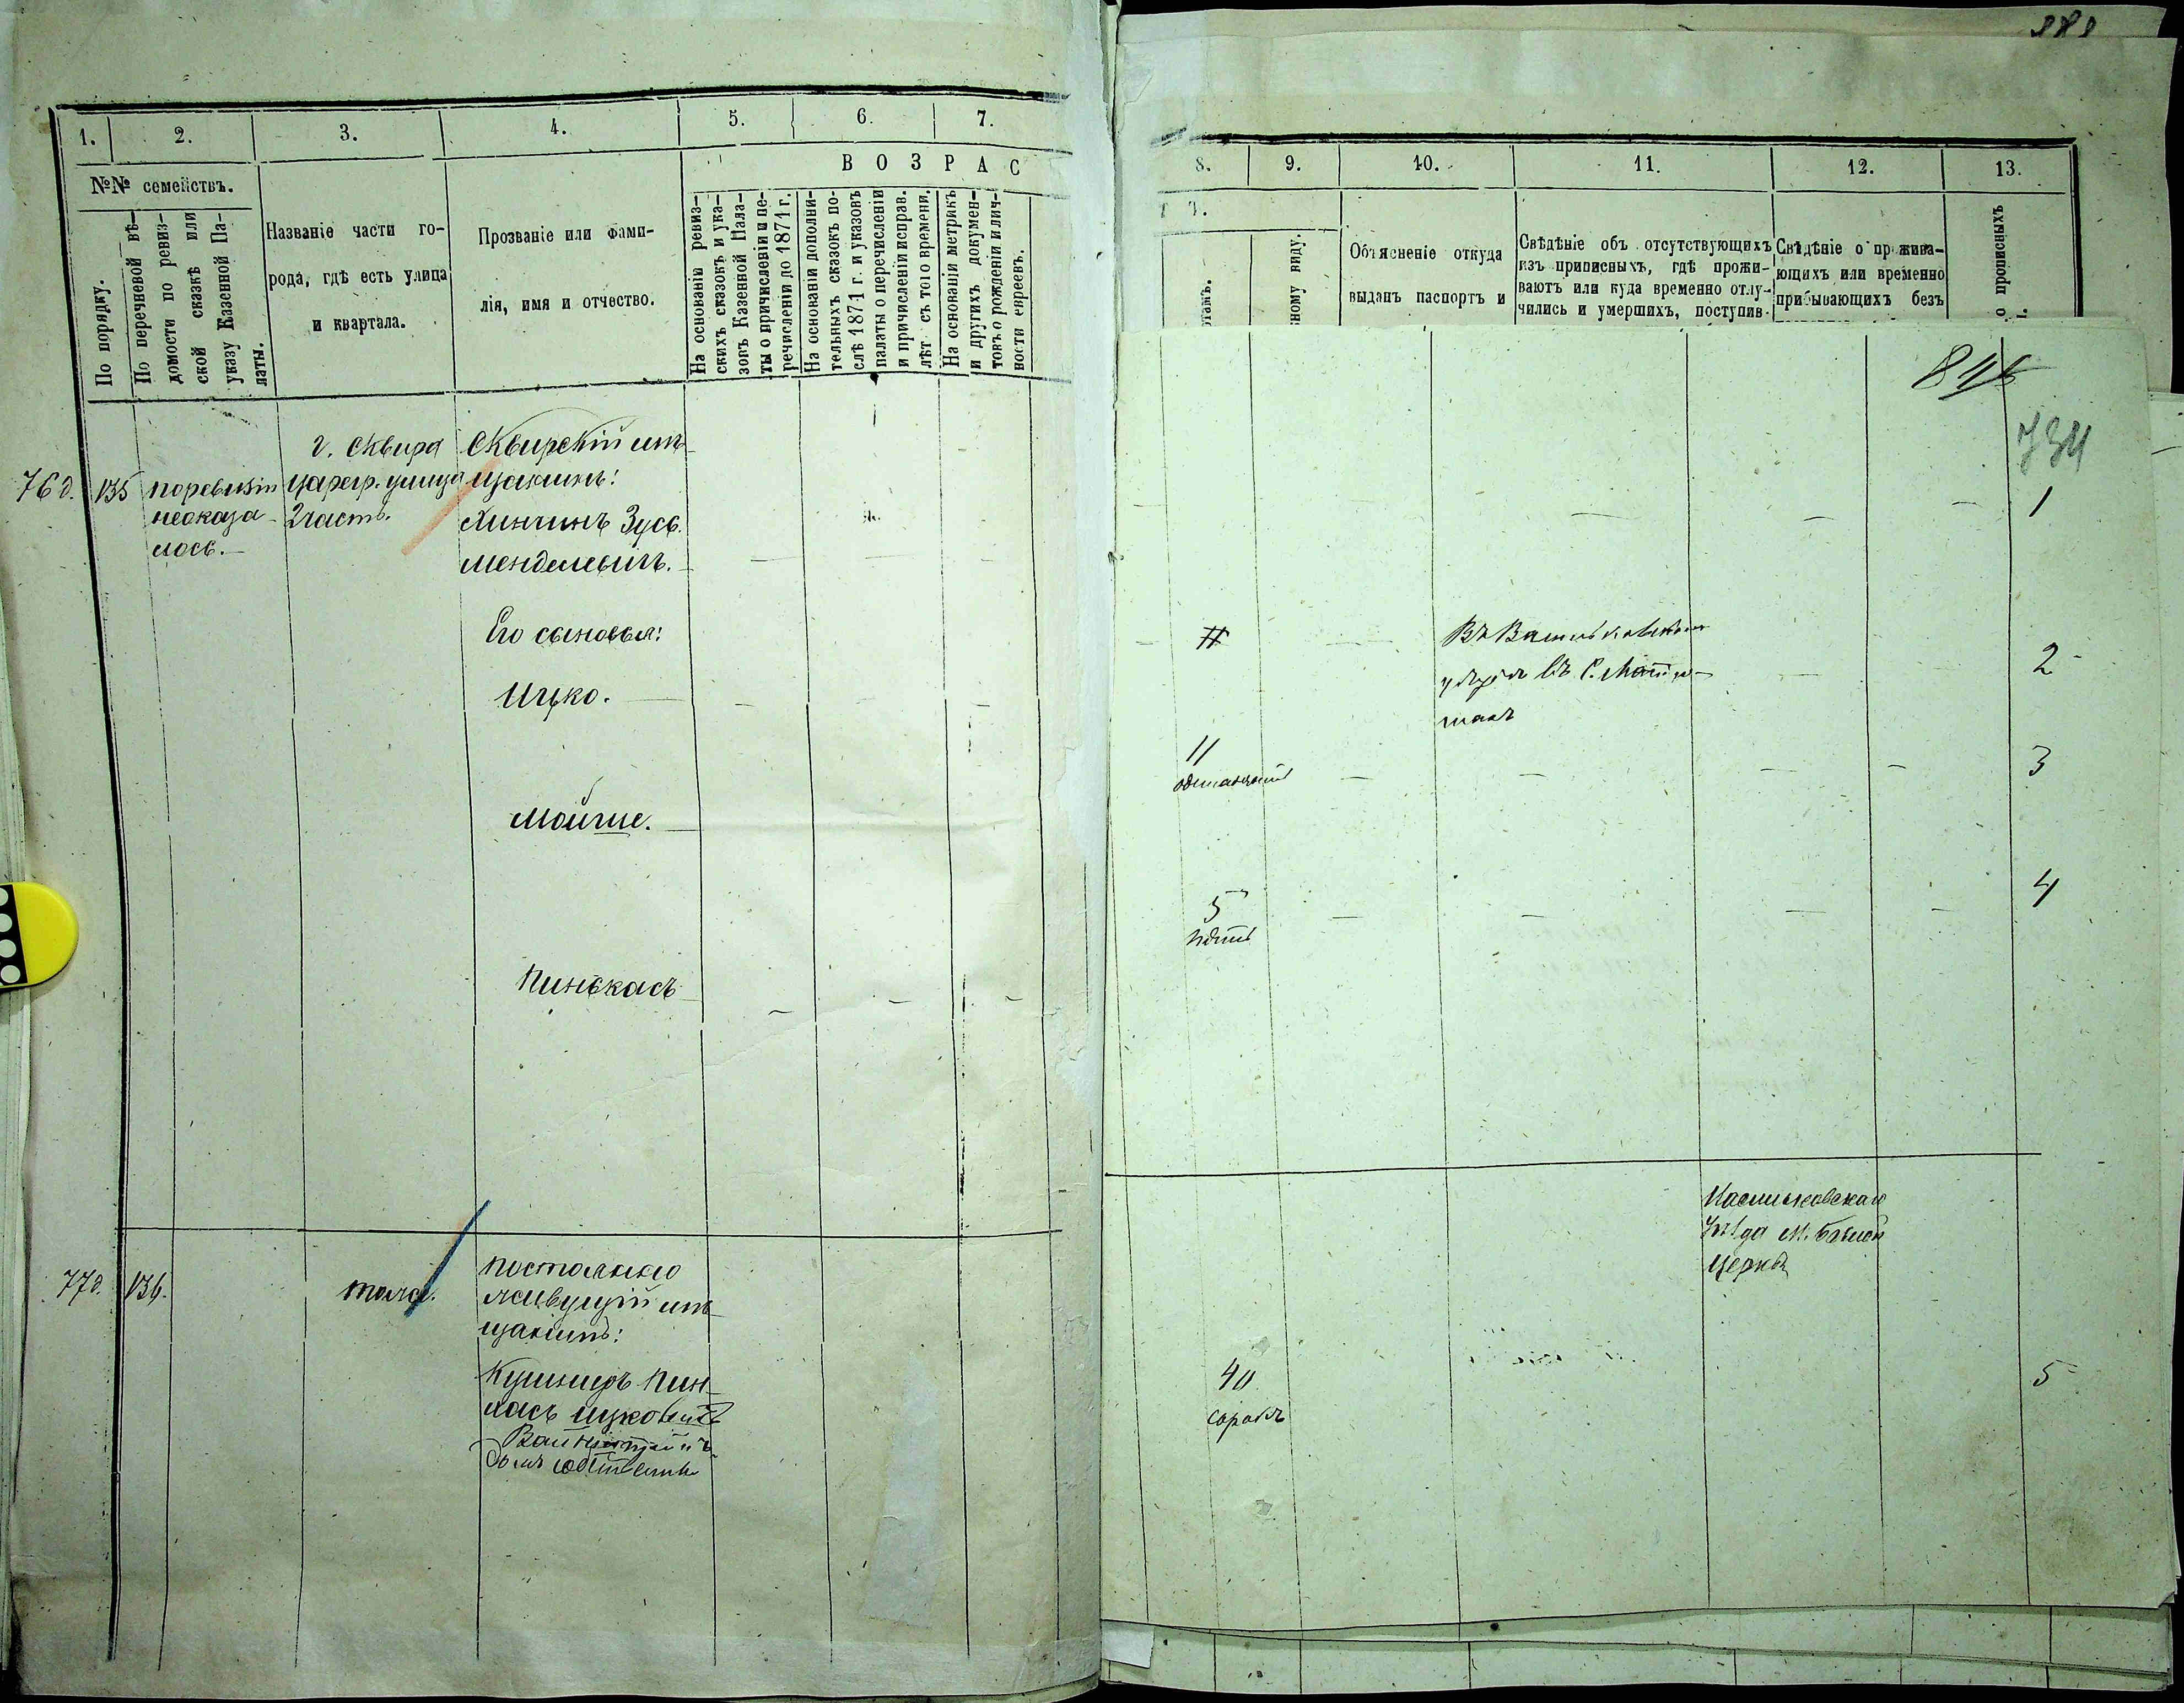 888
1. 2. 3. 4. 5. 6. 7.
ВОЗРАС
№№ семействъ.
По порядку.
По перечневой вѣ-
домости по ревиз-
ской сказкѣ или
указу Казенной Па-
латы.
Названіе части го-
рода, гдѣ есть улица
и квартала.
Прозваніе или фами-
лія, имя и отчество.
На основаніи ревиз-
скихъ сказокъ и ука-
зовъ Казенной Пала-
ты о причисленіи и пе-
речисленіи до 1871 г.
На основаніи дополни-
тельныхъ сказокъ по-
слѣ 1871 г. и указовъ
палаты о перечисленіи
и причисленіи исправ.
лѣт съ того времени.
На основаніи метрикъ
и другихъ докумен-
товъ о рожденіи и лич-
ности евреевъ.
76 д. 135 по ревизіи
неоказа-
лось.
г. Сквира
улица
2 часть.
Сквирскій мѣ-
щанинъ:
Хинчинъ Зусь
Менделевичъ.
Его сыновья:
Ицко.
Мойше.
Пинькасъ
77 д. 136.
тоже.
постоянно
живущій мѣ-
щанинъ:
Кушниръ Пин-
хась Ицковичъ
домъ
8. 9. 10. 11. 12. 13.
Т Ъ.
ному виду.
Объясненіе откуда
выданъ паспортъ и
Свѣдѣніе объ отсутствующихъ
изъ приписныхъ, гдѣ прожи-
ваютъ или куда временно отлу-
чились и умершихъ, поступив-
Свѣдѣніе о прожива-
ющихъ или временно
прибывающихъ безъ
о прописныхъ
846
734
1
Въ Васильковском
уѣздѣ въ С.
2
11
одинадцать
3
5
пять
4
Васильковскаго
уѣзда М. Бѣлой
Церкви
40
сорокъ
5